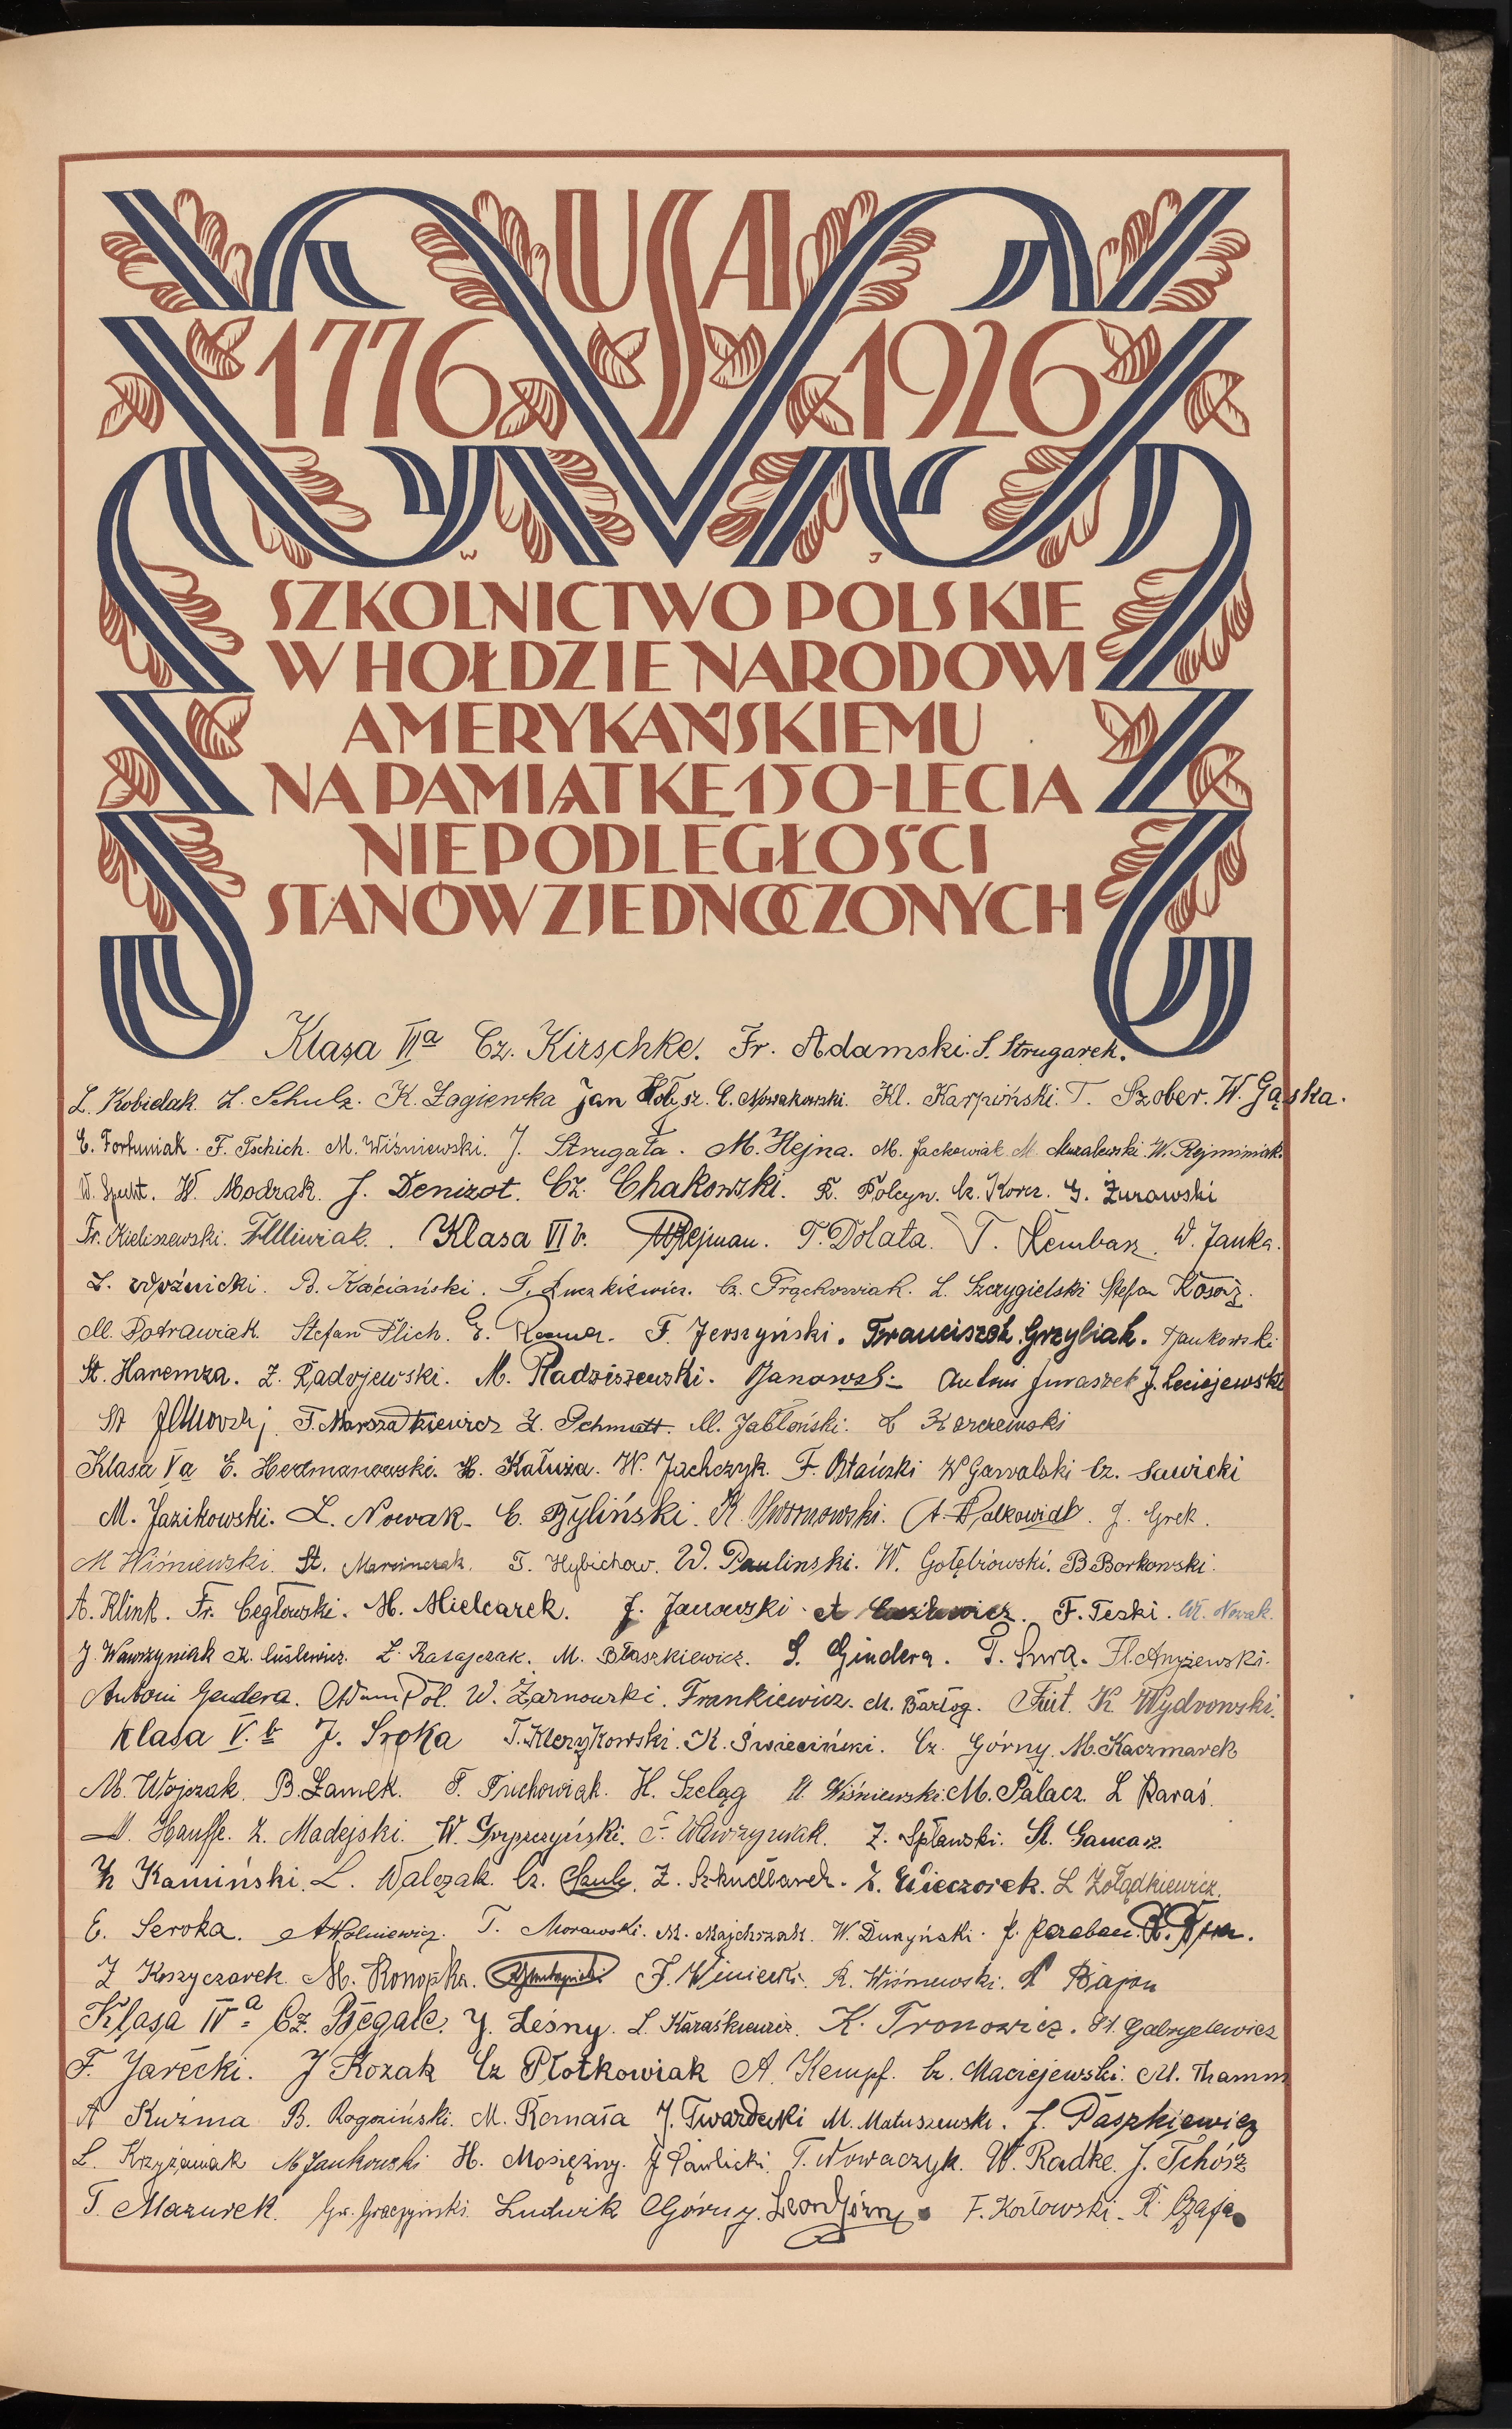 USA
1776 1926
W J
SZKOLNICTWO POLSKIE
W HOŁDZIE NARODOWI
AMERYKAŃSKIEMU
NA PAMIĄTKĘ 150-LECIA
NIEPODLEGŁOŚCI
STANÓW ZJEDNOCZONYCH
Klasa VIa Cz. Kirschke. Fr. Adamski. S. Strugarek.
L. Kobielak. L. Schulz. K. Łagiewka Jan C. Nowakowski. Kl. Karpiński. T. Szober. W. Gąska.
E. Fortuniak. F. Tschich. M. Wiśniewski. J. Strugała. M. Hejna. M. Jackowiak M. Muralewski. W. Rejminiak.
W. Specht. W. Modrak. J. Denizot. Cz. Chakowski. R. Polcyn. Cz. Korcz. G. Żurawski
Fr. Kieliszewski. Klasa VI b. Rejman. T. Dolata. T. Rembarz. W. Janka.
L. Woźnicki. B. Kościański. T. Łuczkiewicz. Cz. Frąckowiak. L. Szczygielski Stefan Kosorz.
M. Potrawiak. Stefan Ilich. F. Jerszyński. Franciszek Grzybiak. Jankowski
St. Haremza. Z. Radojewski. M. Radziszewski. Janowski Antoni Juraszek J. Leciejewski
St T. Marszałkiewicz Z. Schmatt. M. Jabłoński. C Karczewski
Klasa Va E. Hermanowski. H. Kałuża. W. Jachczyk. F. Błański W Gawalski Cz. Sawicki
M. Jazikowski. L. Nowak. C. Byliński. K. A. Walkowiak. J. Grek.
M Wiśniewski. St. Marcinczak. T. Hybichow. W. Paulinski. W. Gołębiowski. B Borkowski.
A. Klink. Fr. Cegłowski. M. Mielcarek. J. Janowski. F. Teski. W. Nowak.
J. Wawrzyniak K. Cuślewicz. L. Ratajczak. M. Błaszkiewicz. S. Gindera. T. Fl. Anyżewski.
Antoni Gendera. Adam Pol. W. Żarnowski. Frankiewicz. M. Bartog. K Wydrowski.
Klasa V. b J. Sroka T. Kleczykowski. K. Świeciński. Cz. Górny. M. Kaczmarek
M. Wojczak. B. Zamek. F. Piechowiak. H. Szeląg M. Wiśniewski. M. Pałacz. L Karaś.
M. Hauffe. Z. Madejski. W. Gryszczyński. F. Wawrzyniak. Z. Spławski. St. Gancarz.
K Kamiński. L. Walczak. Cz. Szulc. Z. Szkudlarek. Z. Wieczorek. L Żołądkiewicz.
E. Seroka. A Wolniewicz. T. Morawski. M. Majchrzak. W. Duryński.
Z Koszyczarek. M. Konopka. F. Winiecki. R. Wiśniewski. Bajon
Klasa IVa Cz. Begale. J. Leśny. L. Karaśkiewicz. K. Tronowicz. St. Gabryelewicz
F. Jarecki. J Kozak Cz Płotkowiak A. Kempf. Cz. Maciejewski. M. Thamm
A Kuźma B. Rogoziński. M. Remata J. Twardecki M. Matuszewski. J. Paszkiewicz
L. Krzyżaniak M Jankowski H. Mosiężny. J Pawlicki. T. Nowaczyk. W. Radke. J. Tchórz
T. Mazurek. Gw. Graczyński. Ludwik Górny. Leon Górny. F. Kozłowski. R. Czaja.